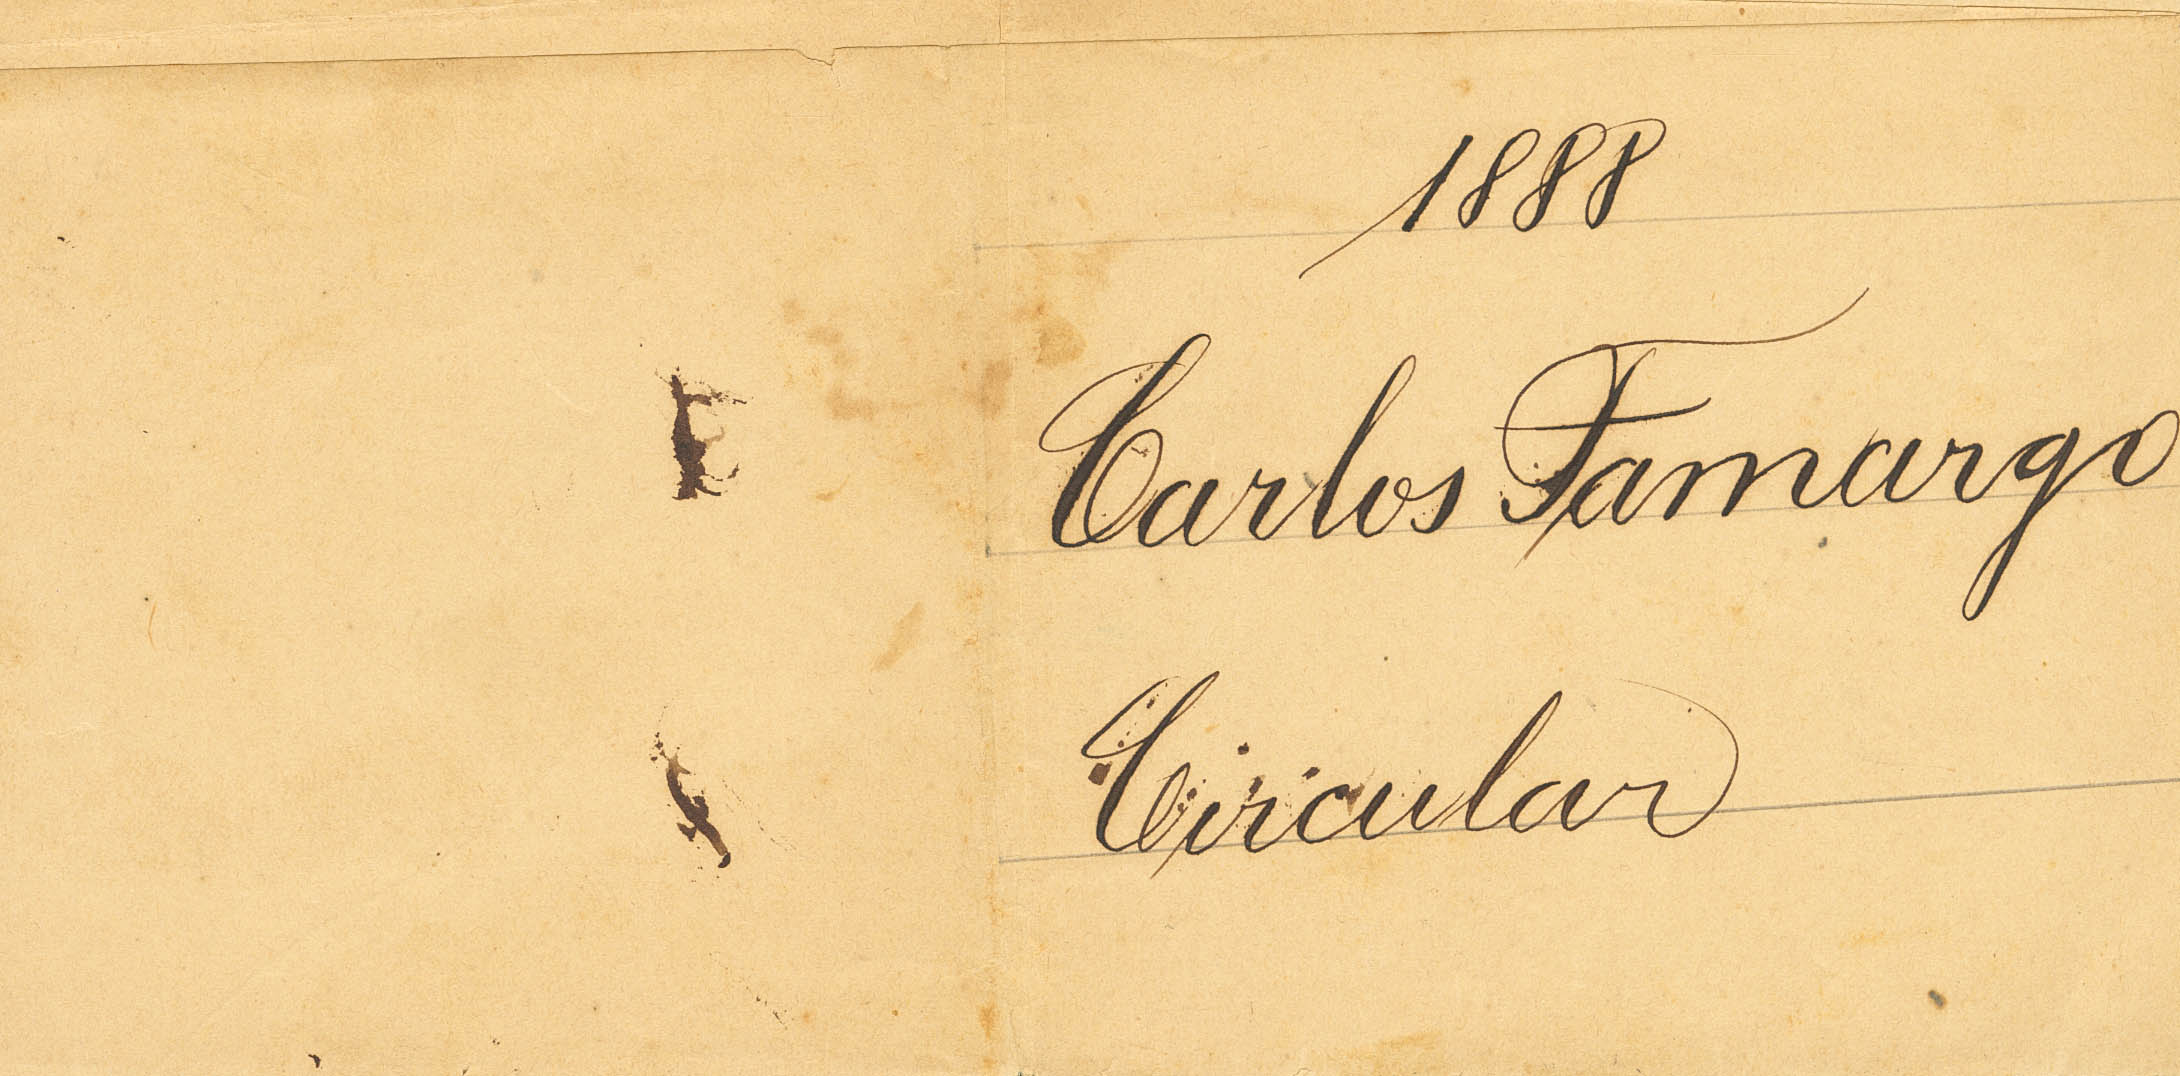 1888
Carlos Tamargo
Circular